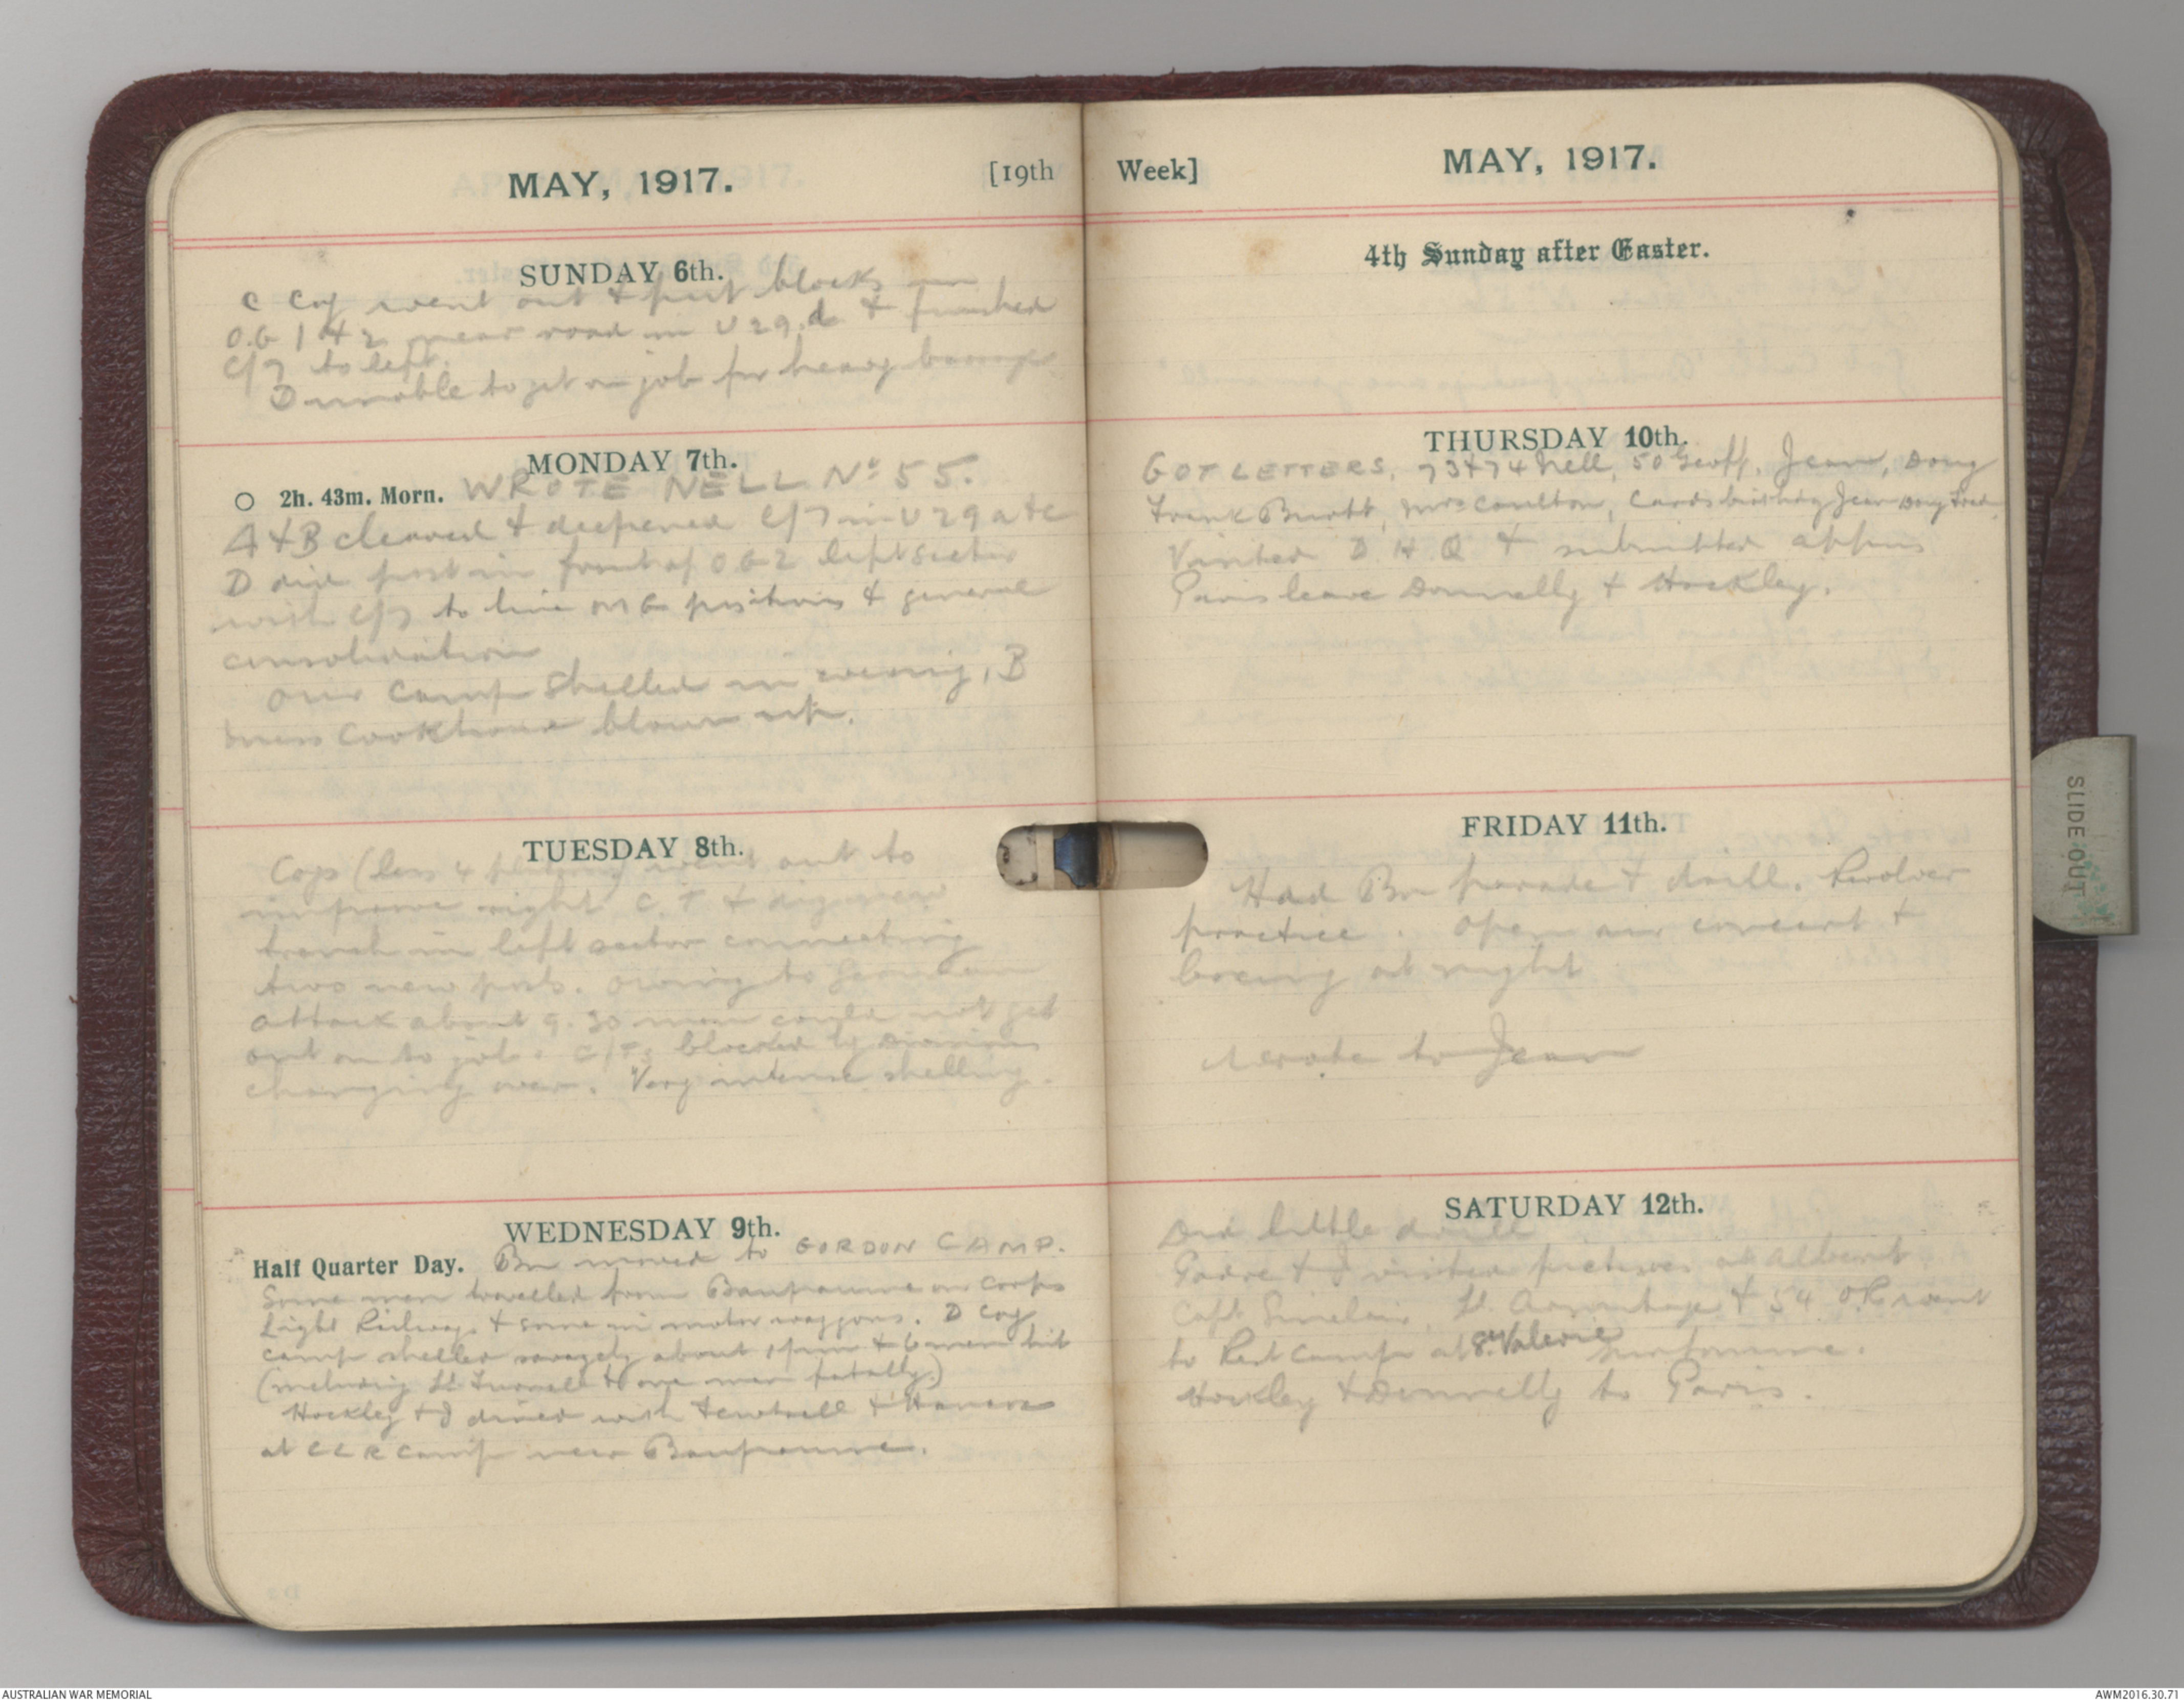 MAY, 1917.
[19th
SUNDAY 6th.
C Coy went out & put blocks in
O.G 1 & 2 near road in U29.d & finished
C/T to left.
D unable to get on job for heavy barrage
MONDAY 7th.
2h. 43m. Morn. WROTE NELL No 55.
A & B cleared & deepened C/T in U29a & c
D did post in front of O.G 2 left sector
with C/T to line M G positions & general
consolidation
Our Camp Shelled in evening, B
mess Cookhouse blown up.
TUESDAY 8th.
Coys (less 4 platoons) went out to
improve right C.T & dig new
trench in left sector connecting
two new posts. Owing to German
attack about 9.30 men could not get
out on to job. C/Ts blocked by Divisions
changing over. Very intense shelling.
WEDNESDAY 9th.
Half Quarter Day. Bn moved to GORDON CAMP.
Some men travelled from Baupaume on Corps
Light Railway & some in motor waggons. D Coy
camp shelled savagely about 1 pm & 6 men hit
(including Lt & one man fatally.)
Hockley & I dined with &
at C C R camp near Baupaume.
Week]
MAY, 1917.
4th Sunday after Easter.
THURSDAY 10th.
GOT LETTERS, 73 & 74 Nell, 50 Geoff, Jean, Doug
Frank Burtt, Mrs Coulton, Cards birthday Jean Doug
Visited D H Q & submitted appns
Paris leave Donnelly & Hockley.
FRIDAY 11th.
Had Bn parade & drill. Revolver
practice. Open air concert &
boxing at night
Wrote to Jean
SATURDAY 12th.
Did little drill
Padre & I visited pictures at Albert
Capt Sinclair, Lt. Armitage & 54 ORs went
to Rest Camp at St. Valerie sur Somme.
Hockley & Donnelly to Paris.
SLIDE OUT
AUSTRALIAN WAR MEMORIAL
AWM2016.30.71